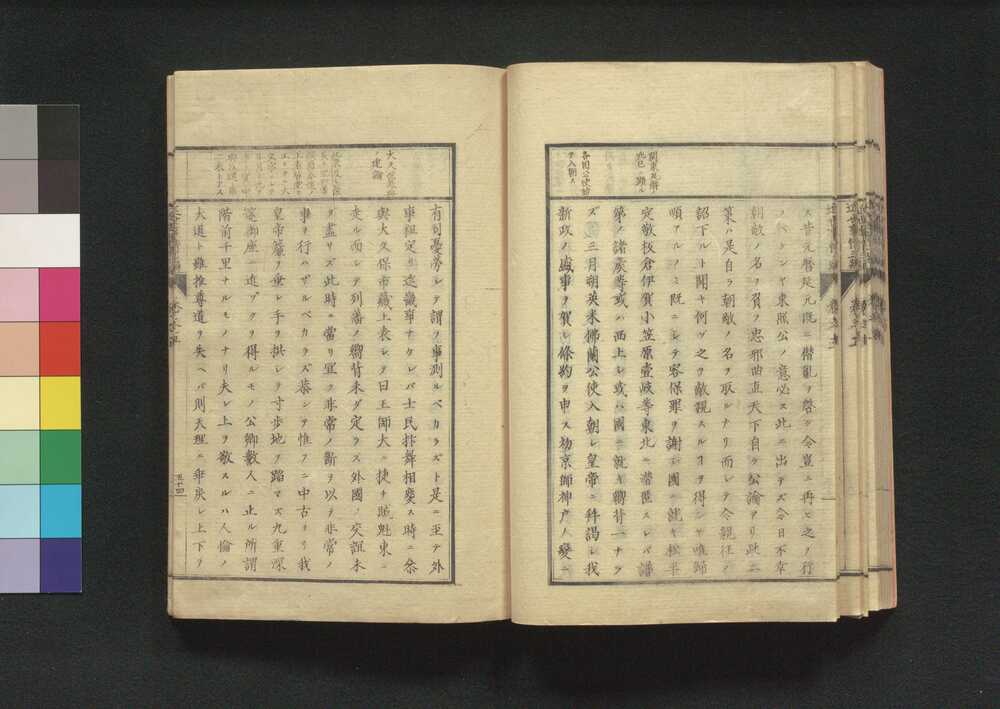 ス昔元暦延元既ニ僭亂ヲ啓ク今豈再ヒ之ノ行
ノベケンヤ東照公ノ意必ス此ニ出テズ今日不幸
朝敵ノ名ヲ負フ忠邪曲直天下自ラ公論アリ此二
策ハ是自ラ朝敵ノ名ヲ取ルナリ而シテ今親征ノ
詔下ルト聞キ何ゾ之ヲ敵視スルヿヲ得ンヤ唯歸
順アルノミ既ニシテ容保罪ヲ謝シ國ニ就キ松平
定敬板倉伊賀小笠原壹岐等東北ニ潜匿スレバ譜
第ノ諸侯等或ハ西上シ或ハ國ニ就キ嚮背一ナラ
ズ○三月朔英米佛蘭公使入朝シ皇帝ニ拜謁シ我
新政ノ盛事ヲ賀シ條約ヲ申ス初京師神戸ノ變ニ
關東瓦解
已ニ顯ル
各國公使始
テ入朝ス
有司憂勞シテ謂フ事測ルベカラズト是ニ至テ外
事粗定リ邊釁事ナケレバ士民抃舞相慶ス時ニ參
與大久保市藏上表シテ曰王師大ニ捷チ賊魁東ニ
走ル而シテ列藩ノ嚮背未ダ定ラズ外國ノ交誼未
ダ盡リズ此時ニ當リ宜ク非常ノ斷ヲ以テ非常ノ
事ヲ行ハザルベカラズ恭シク惟フニ中古ヨリ我
皇帝簾ヲ垂レ手ヲ拱シテ寸歩地ヲ踏マズ九重深
ク御座ニ近ヅクヲ得ルモノ公卿數人ニ止ル所謂
階前千里ナルモノナリ夫レ上ヲ敬スルハ人倫ノ
大道ト雖推尊道ヲ失ヘバ則天理ニ乖戻シ上下ヲ
大久保市藏
ノ建論
五十四